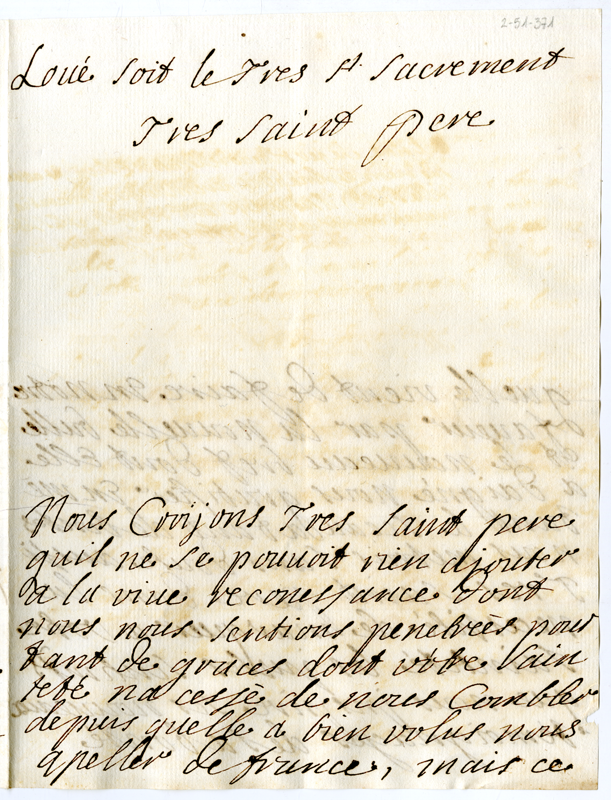 2-51-371
Loué soit le Tres st. sacrement
Tres saint pere
Nous Croijons Tres saint pere
quil ne se pouvoit rien ajouter
a la vive reconessance dont
nous nous sentions penetrées pour
tant de graces dont votre sain
teté na cessé de nous Combler
depuis quelle a bien volus nous
apeller de france, mais ce